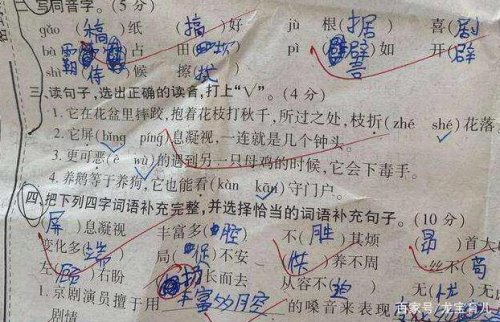 二、写同音字。(5分)
gǎo (稿)纸 (搞)好 jù 根(据) 喜(剧)
bà (霸)占 田( )坝 pì ( )譬如 开(辟)
shì (侍)候 擦(拭)
三、读句子,选出正确的读音,打上“√”。(4分)
1. 它在花盆里摔跤,抱着花枝打秋千,所过之处,枝折(zhé shé)花落
2. 它屏(bìng píng)息凝视,一连就是几个钟头。
3. 更可恶(è wù)的遇到另一只母鸡的时候,它会下毒手。
4. 养鹅等于养狗,它也能看(kàn kān)守门户。
四、把下列四字词语补充完整,并选择恰当的词语补充句子。(10分)
(屏)息凝视 丰富多(腔) 不(胜)其烦 (昂)首大
变化多(端) 局(促)不安 (供)养不周 一丝不(苟)
左(顾)右盼 (扬)长而去 从容不(迫) 无(忧)无
1. 京剧演员擅于用 丰富多腔 的嗓音来表现
剧情
百家号/龙宝育儿